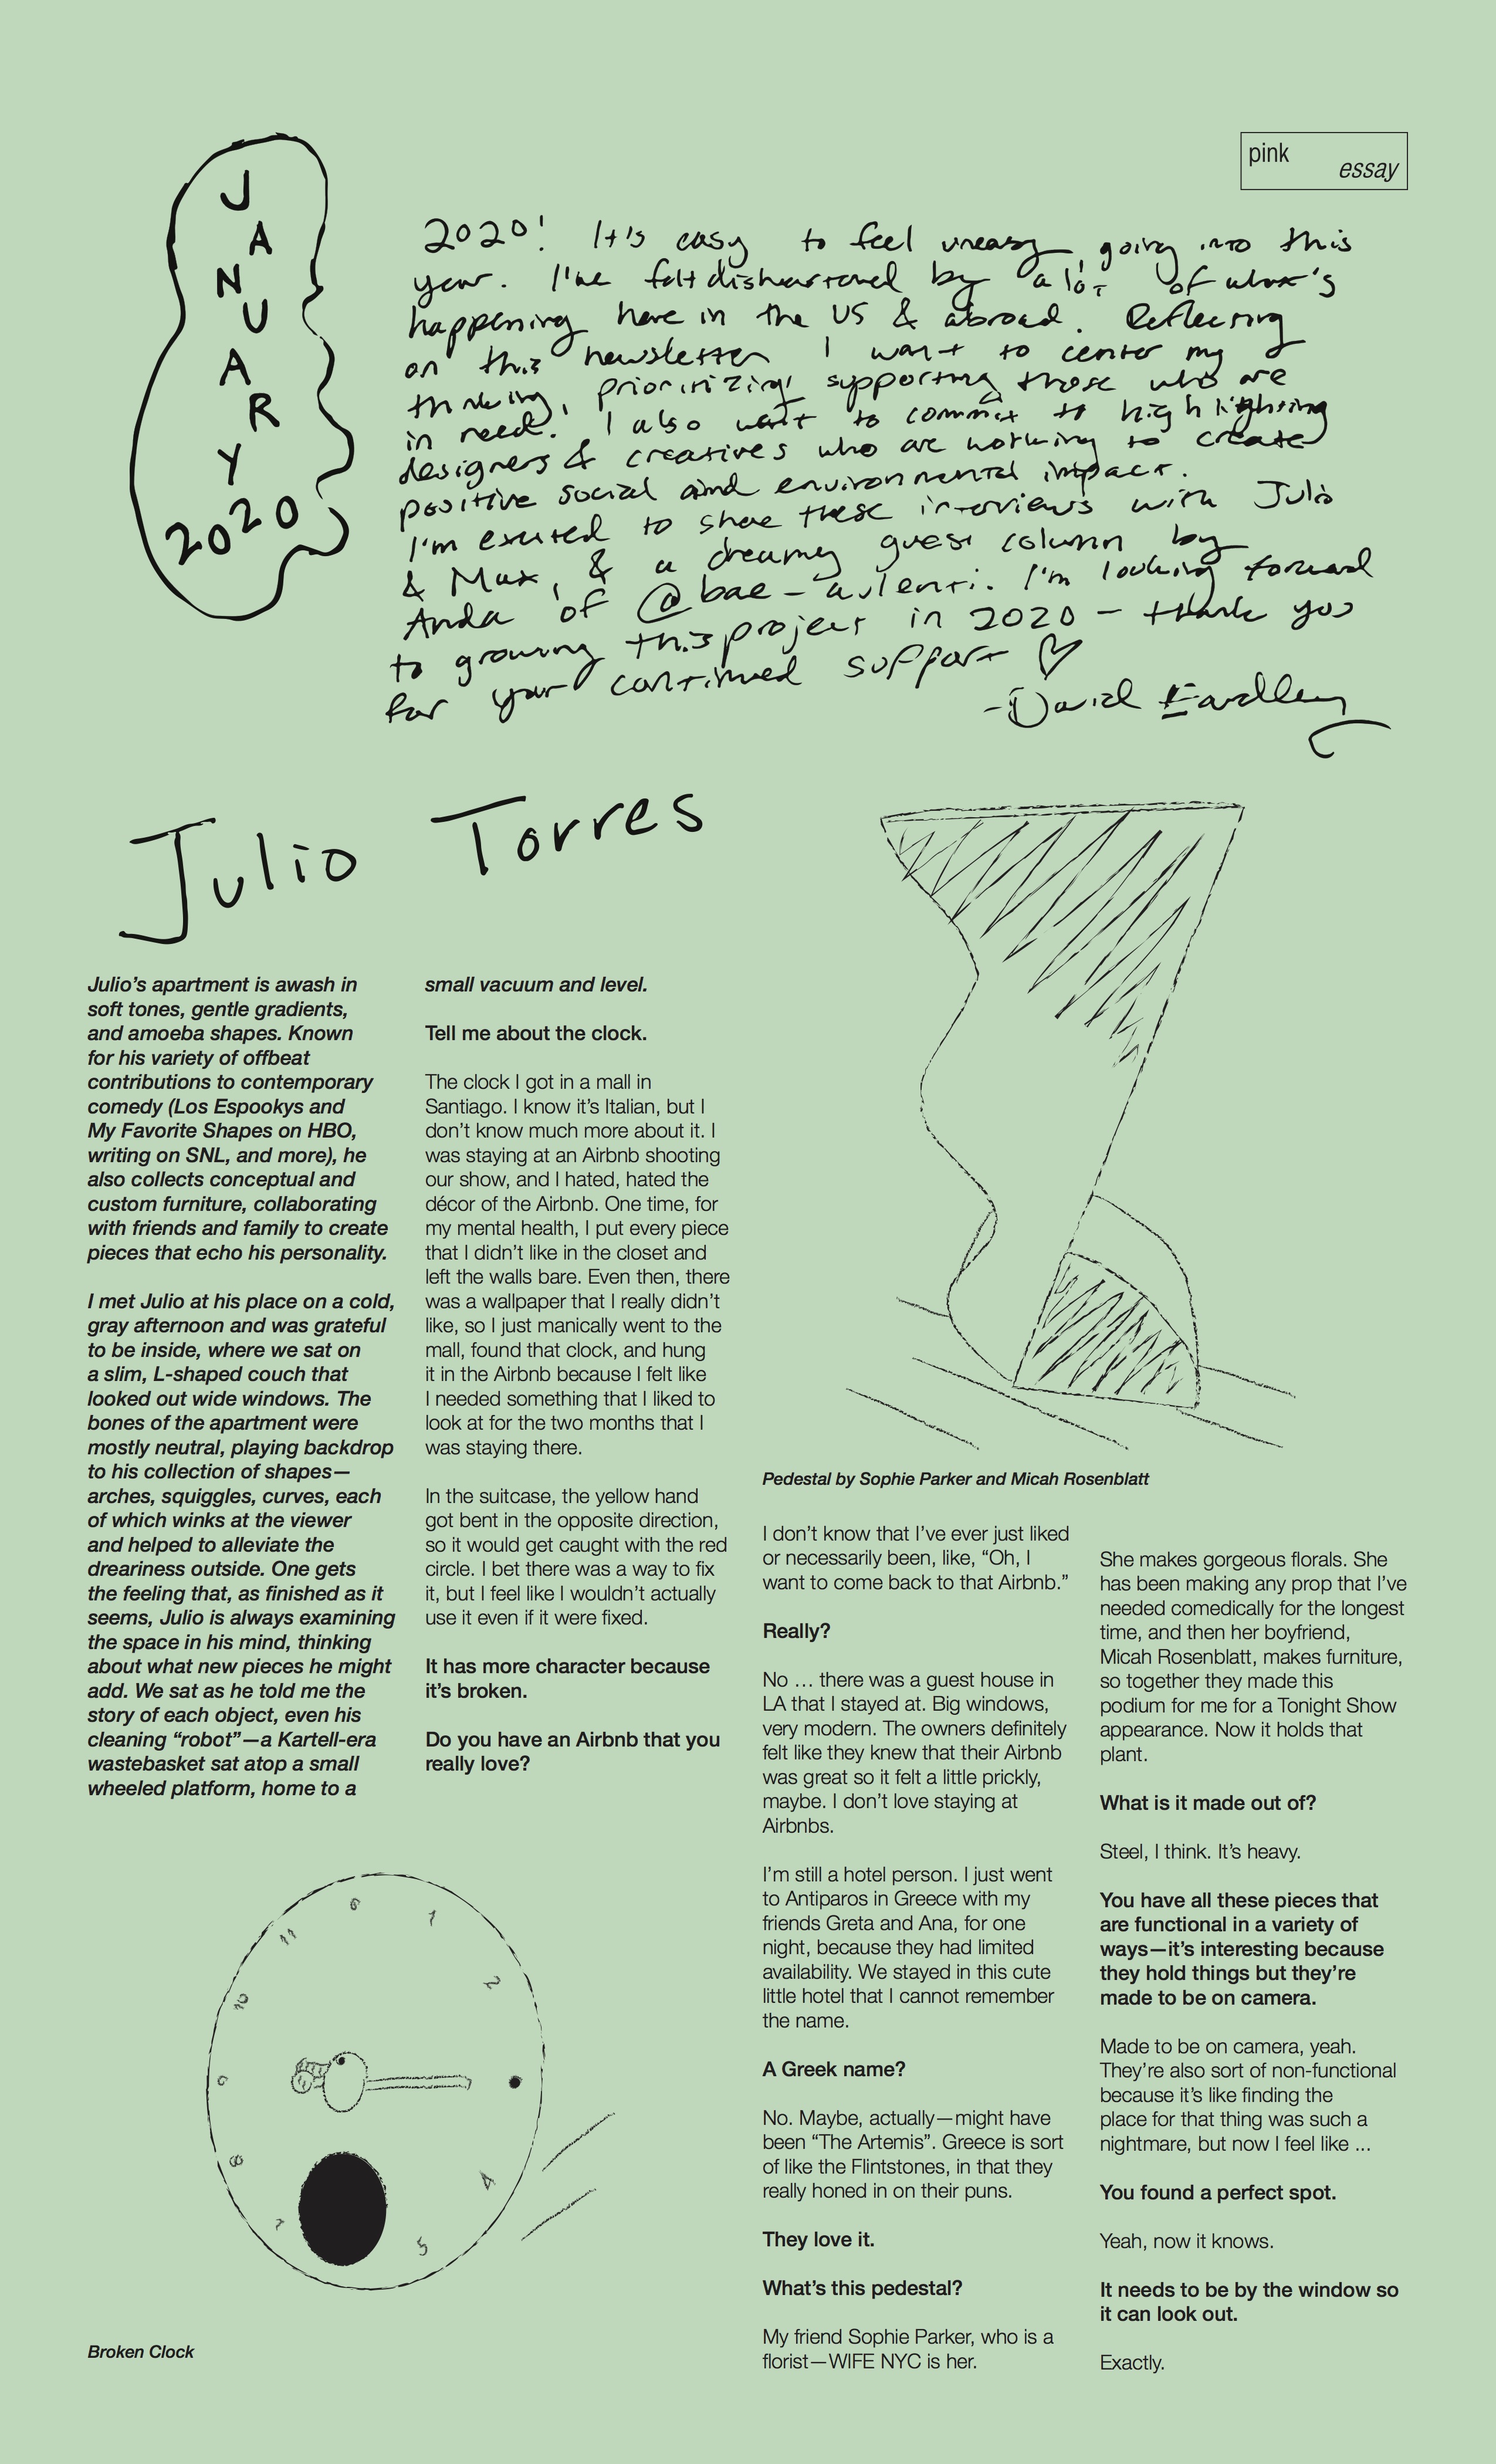 JANUARY
2020
pink
essay
2020! It's easy to feel uneasy going into this
year. I've felt disheartened by a lot of what's
happening here in the US & abroad. Reflecting
on this newsletter I want to center my
thinking, prioritizing supporting those who are
in need. I also want to commit to highlighting
designers & creatives who are working to create
positive social and environmental impact.
I'm excited to share these interviews with Julio
& Max, & a dreamy guest column by
Anda of @bae-aulenti. I'm looking forward
to growing this project in 2020 – thank you
for your continued support
-David Eardley
Julio Torres
Julio’s apartment is awash in
soft tones, gentle gradients,
and amoeba shapes. Known
for his variety of offbeat
contributions to contemporary
comedy (Los Espookys and
My Favorite Shapes on HBO,
writing on SNL, and more), he
also collects conceptual and
custom furniture, collaborating
with friends and family to create
pieces that echo his personality.
I met Julio at his place on a cold,
gray afternoon and was grateful
to be inside, where we sat on
a slim, L-shaped couch that
looked out wide windows. The
bones of the apartment were
mostly neutral, playing backdrop
to his collection of shapes—
arches, squiggles, curves, each
of which winks at the viewer
and helped to alleviate the
dreariness outside. One gets
the feeling that, as finished as it
seems, Julio is always examining
the space in his mind, thinking
about what new pieces he might
add. We sat as he told me the
story of each object, even his
cleaning “robot”—a Kartell-era
wastebasket sat atop a small
wheeled platform, home to a
small vacuum and level.
Tell me about the clock.
The clock I got in a mall in
Santiago. I know it’s Italian, but I
don’t know much more about it. I
was staying at an Airbnb shooting
our show, and I hated, hated the
décor of the Airbnb. One time, for
my mental health, I put every piece
that I didn’t like in the closet and
left the walls bare. Even then, there
was a wallpaper that I really didn’t
like, so I just manically went to the
mall, found that clock, and hung
it in the Airbnb because I felt like
I needed something that I liked to
look at for the two months that I
was staying there.
In the suitcase, the yellow hand
got bent in the opposite direction,
so it would get caught with the red
circle. I bet there was a way to fix
it, but I feel like I wouldn’t actually
use it even if it were fixed.
It has more character because
it’s broken.
Do you have an Airbnb that you
really love?
6
1
11
2
10
8
4
7
5
Broken Clock
Pedestal by Sophie Parker and Micah Rosenblatt
I don’t know that I’ve ever just liked
or necessarily been, like, “Oh, I
want to come back to that Airbnb.”
Really?
No … there was a guest house in
LA that I stayed at. Big windows,
very modern. The owners definitely
felt like they knew that their Airbnb
was great so it felt a little prickly,
maybe. I don’t love staying at
Airbnbs.
I’m still a hotel person. I just went
to Antiparos in Greece with my
friends Greta and Ana, for one
night, because they had limited
availability. We stayed in this cute
little hotel that I cannot remember
the name.
A Greek name?
No. Maybe, actually—might have
been “The Artemis”. Greece is sort
of like the Flintstones, in that they
really honed in on their puns.
They love it.
What’s this pedestal?
My friend Sophie Parker, who is a
florist—WIFE NYC is her.
She makes gorgeous florals. She
has been making any prop that I’ve
needed comedically for the longest
time, and then her boyfriend,
Micah Rosenblatt, makes furniture,
so together they made this
podium for me for a Tonight Show
appearance. Now it holds that
plant.
What is it made out of?
Steel, I think. It’s heavy.
You have all these pieces that
are functional in a variety of
ways—it’s interesting because
they hold things but they’re
made to be on camera.
Made to be on camera, yeah.
They’re also sort of non-functional
because it’s like finding the
place for that thing was such a
nightmare, but now I feel like ...
You found a perfect spot.
Yeah, now it knows.
It needs to be by the window so
it can look out.
Exactly.